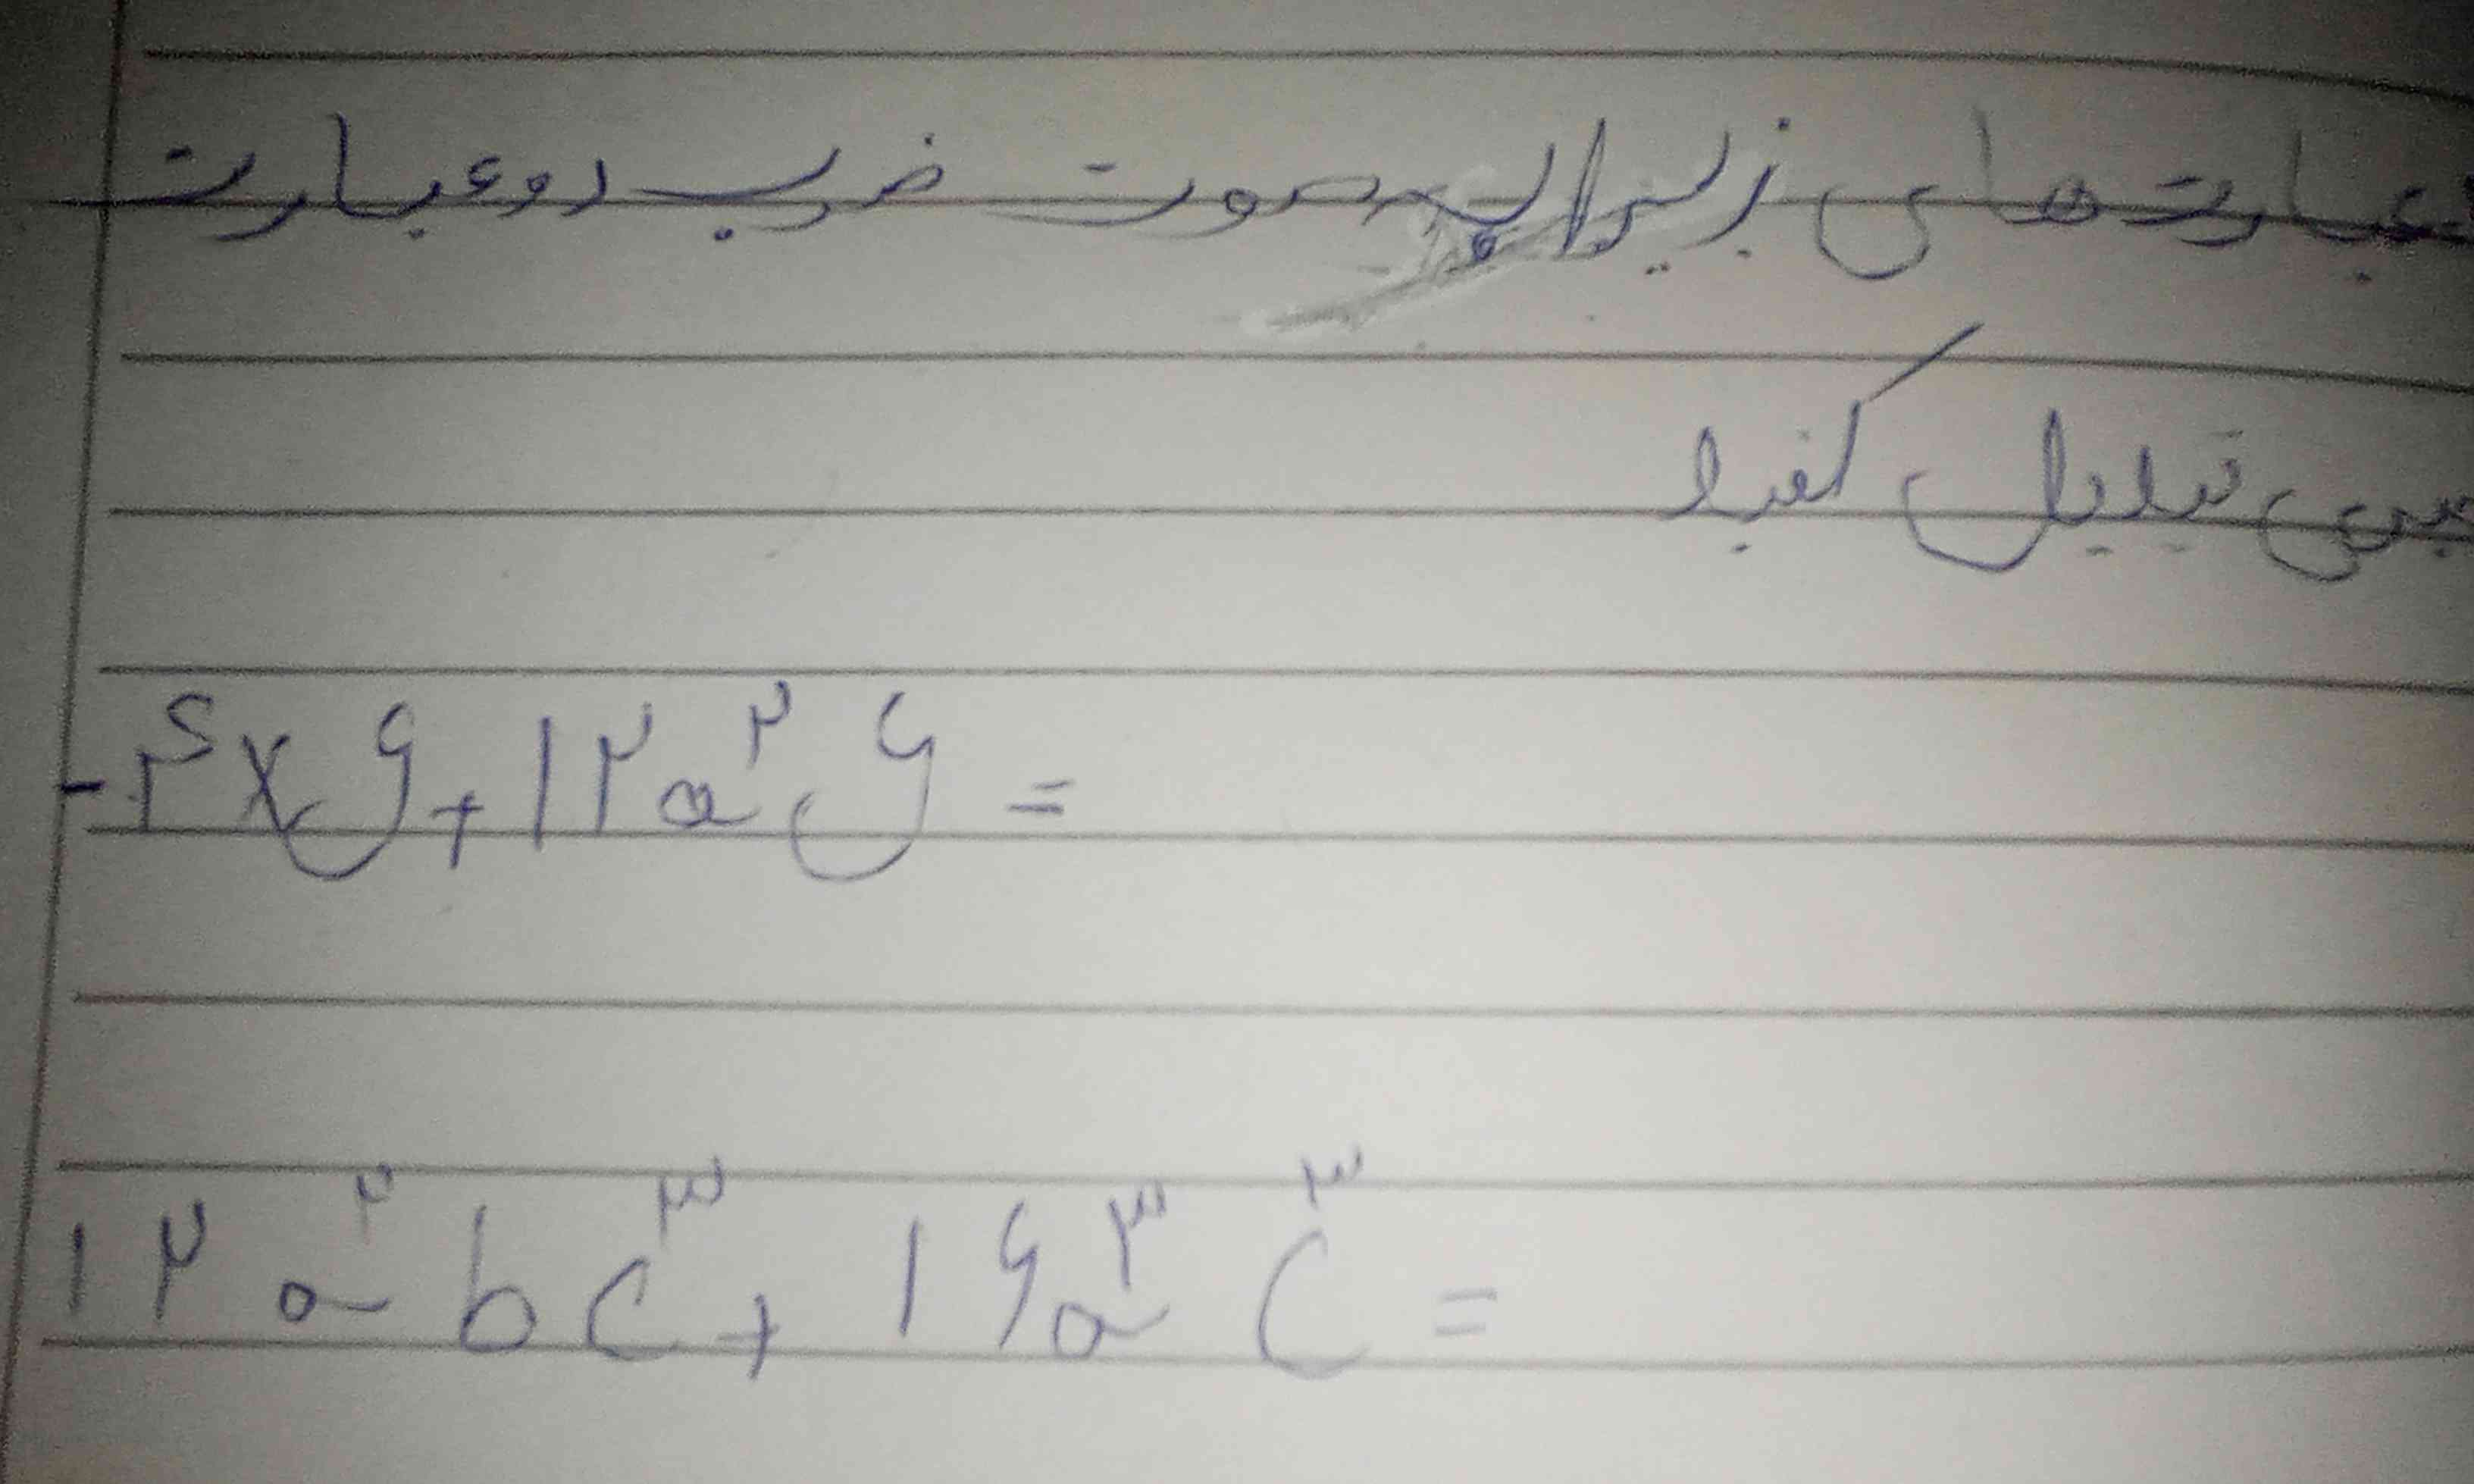 عبارت های زیر را به صورت ضرب دو عبارت
جبری تبدیل کنید
-۴xy+۱۲a²y=
۱۲a²bc³+۱۶a³c³=